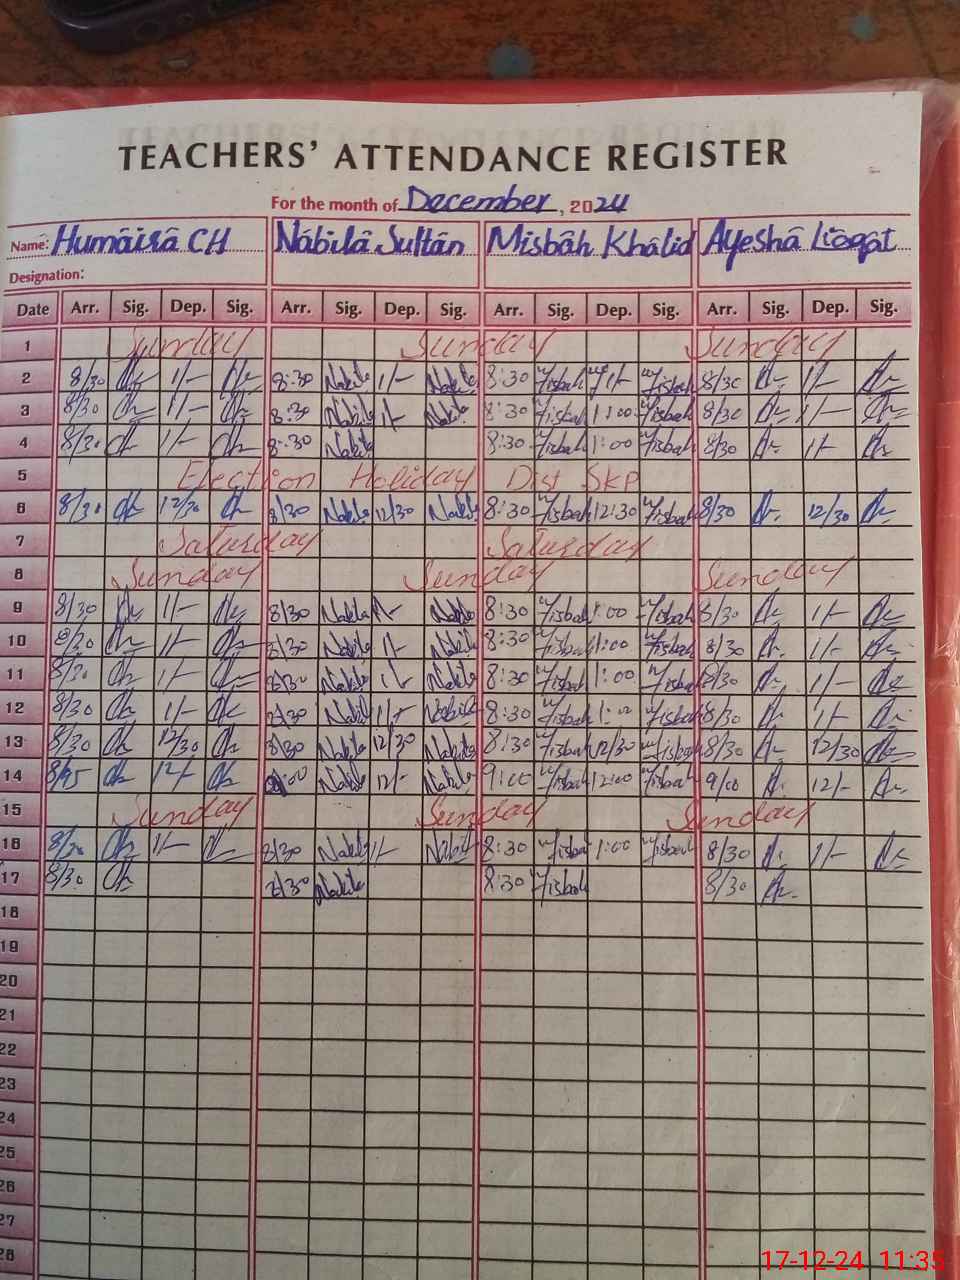 TEACHERS' ATTENDANCE REGISTER
For the month of December, 2024
Name: Humaira CH Nabila Sultan Misbah Khalid Ayesha Liaqat
Designation:
Date Arr. Sig. Dep. Sig. Arr. Sig. Dep. Sig. Arr. Sig. Dep. Sig. Arr. Sig. Dep. Sig.
1 Sunday Sunday Sunday
2 8/30 1/- 8:30 Nabila 1/- Nabila 8:30 Misbah 1/- Misbah 8/30 1/-
3 8/30 1/- 8:30 Nabila 1/- Nabila 8:30 Misbah 1:00 Misbah 8/30 1/-
4 8/30 1/- 8:30 Nabila 8:30 Misbah 1:00 Misbah 8/30 1/-
5 Election Holiday Dist SKP
6 8/30 12/30 8/30 Nabila 12/30 Nabila 8:30 Misbah 12:30 Misbah 8/30 12/30
7 Saturday Saturday
8 Sunday Sunday Sunday
9 8/30 1/- 8/30 Nabila 1/- Nabila 8:30 Misbah 1:00 Misbah 8/30 1/-
10 8/30 1/- 8/30 Nabila 1/- Nabila 8:30 Misbah 1:00 Misbah 8/30 1/-
11 8/30 1/- 8/30 Nabila 1/- Nabila 8:30 Misbah 1:00 Misbah 8/30 1/-
12 8/30 1/- 8/30 Nabila 1/- Nabila 8:30 Misbah 1:00 Misbah 8/30 1/-
13 8/30 12/30 8/30 Nabila 12/30 Nabila 8:30 Misbah 12/30 Misbah 8/30 12/30
14 8/45 12/- Nabila 12/- Nabila 9:00 Misbah 12:00 Misbah 9/00 12/-
15 Sunday Sunday Sunday
16 8/30 1/- 8/30 Nabila 1/- Nabila 8:30 Misbah 1:00 Misbah 8/30 1/-
17 8/30 8/30 Nabila 8:30 Misbah 8/30
18
19
20
21
22
23
24
25
26
27
28
17-12-24 11:35